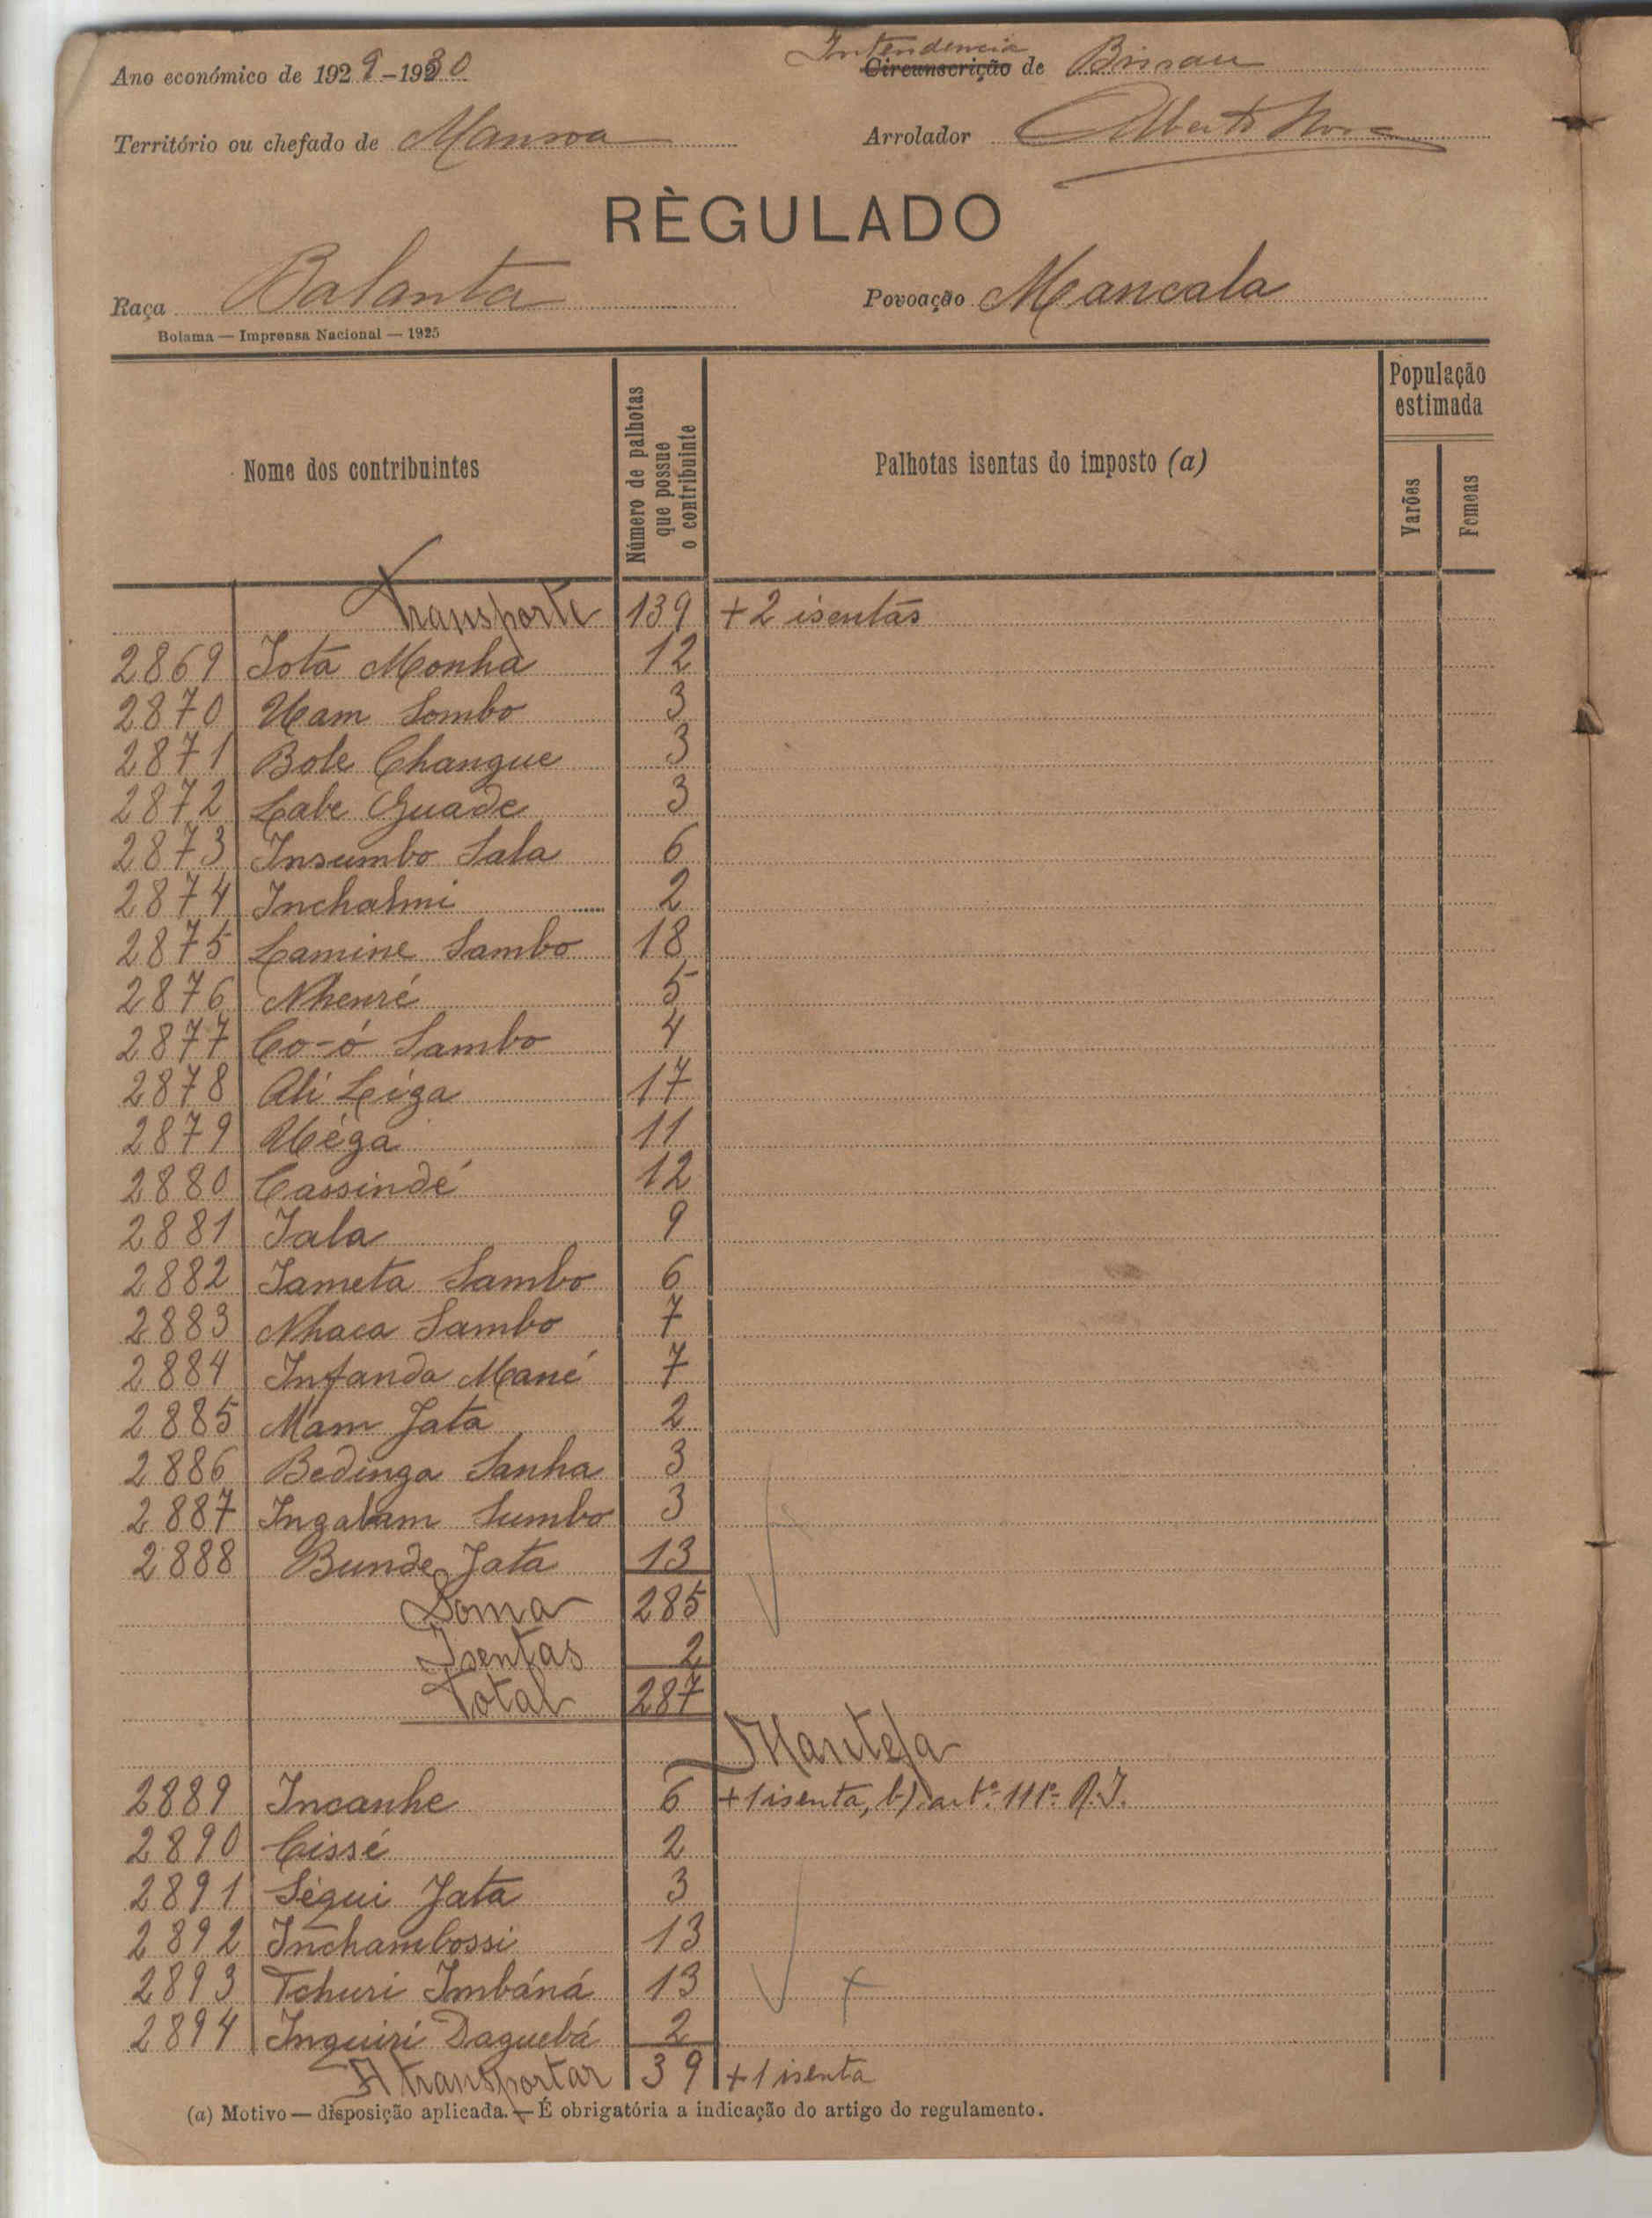 Ano económico de 1929-1930
Intendencia
Circunscrição de Bissau
Território ou chefado de Mansoa
Arrolador Alberto
RÈGULADO
Raça Balanta
Povoação Mancala
Bolama — Imprensa Nacional — 1925
Nome dos contribuintes
Número de palhotas que possue o contribuinte
Palhotas isentas do imposto (a)
População estimada
Varões
Femeas
Transporte 139 + 2 isentas
2869 Iota Monha 12
2870 Uam Sombo 3
2871 Bote Changue 3
2872 Labe Guade 3
2873 Insumbo Sala 6
2874 Inchalmi 2
2875 Lamine Sambo 18
2876 Nhenré 5
2877 Co-ó Sambo 4
2878 Ali Leiga 17
2879 Uéga 11
2880 Cassindé 12
2881 Iala 9
2882 Iameta Sambo 6
2883 Nhaca Sambo 7
2884 Infanda Mané 7
2885 Mam Jata 2
2886 Bedinga Sanha 3
2887 Ingabam Sumbo 3
2888 Bunde Jata 13
Soma 285
Isentas 2
Total 287
Mantefa
2889 Incanhe 6 + 1 isenta, b) artº. 111º. R.I.
2890 Cissé 2
2891 Ségui Jata 3
2892 Inchambossi 13
2893 Tchuri Imbáná 13
2894 Inguiri Daguebá 2
A transportar 39 + 1 isenta
(a) Motivo — disposição aplicada. — É obrigatória a indicação do artigo do regulamento.